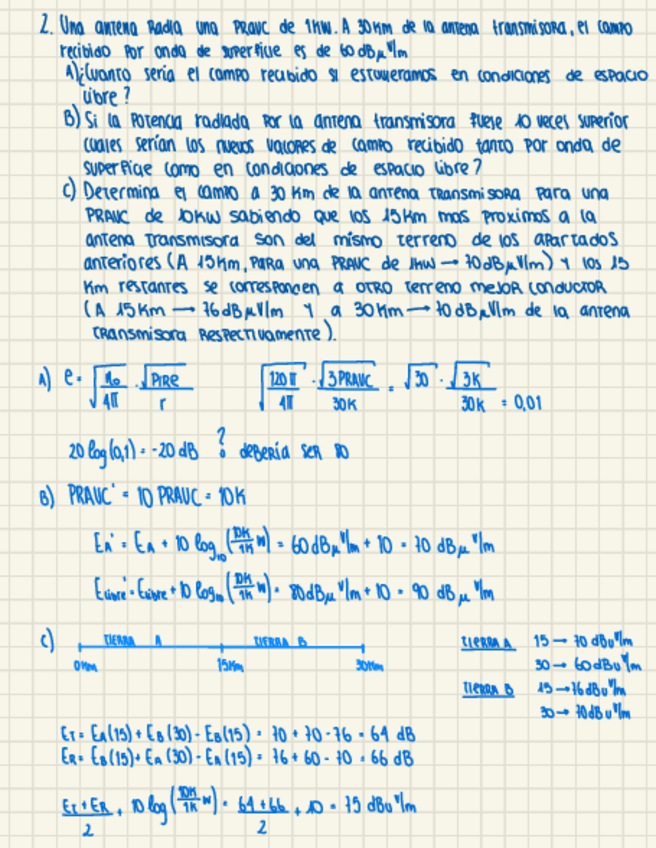 2. Una antena Radia una PRAVC de 1KW. A 30KM de la antena transmisora, el campo
recibido por onda de superficie es de 60 dBμV/m
A) ¿Cuanto sería el campo recibido si estuvieramos en condiciones de espacio
libre?
B) Si la Potencia radiada por la antena transmisora fuese 10 veces superior
cuales serían los nuevos valores de campo recibido tanto por onda de
superficie como en condiciones de espacio libre?
C) Determina el campo a 30 Km de la antena transmisora para una
PRAVC de 10KW sabiendo que los 15Km mas proximos a la
antena transmisora son del mismo terreno de los apartados
anteriores (A 15Km, Para una PRAVC de 1KW → 70dBμV/m) y los 15
Km restantes se corresponden a otro terreno mejor conductor
(A 15Km → 76dBμV/m y a 30Km → 70dBμV/m de la antena
transmisora Respectivamente).
A) e = √(η₀/4π) · √PIRE/r √(120π/4π) · √3PRAVC/30K = √30 · √3K/30K = 0,01
20 log(0,1) = -20 dB ? debería ser 80
B) PRAVC' = 10 PRAVC = 10K
EA' = EA + 10 log₁₀ (10K/1K W) = 60dBμV/m + 10 = 70 dBμV/m
Elibre' = Elibre + 10 log₁₀ (10K/1K W) = 80dBμV/m + 10 = 90 dBμV/m
C) TIERRA A TIERRA B
0Km 15Km 30Km
TIERRA A 15 → 70 dBuV/m
30 → 60dBuV/m
TIERRA B 15 → 76dBuV/m
30 → 70dBuV/m
ET = EA(15) + EB(30) - EB(15) = 70 + 70 - 76 = 64 dB
ER = EB(15) + EA(30) - EA(15) = 76 + 60 - 70 = 66 dB
(ET + ER)/2 + 10 log (10K/1K W) = (64 + 66)/2 + 10 = 75 dBuV/m